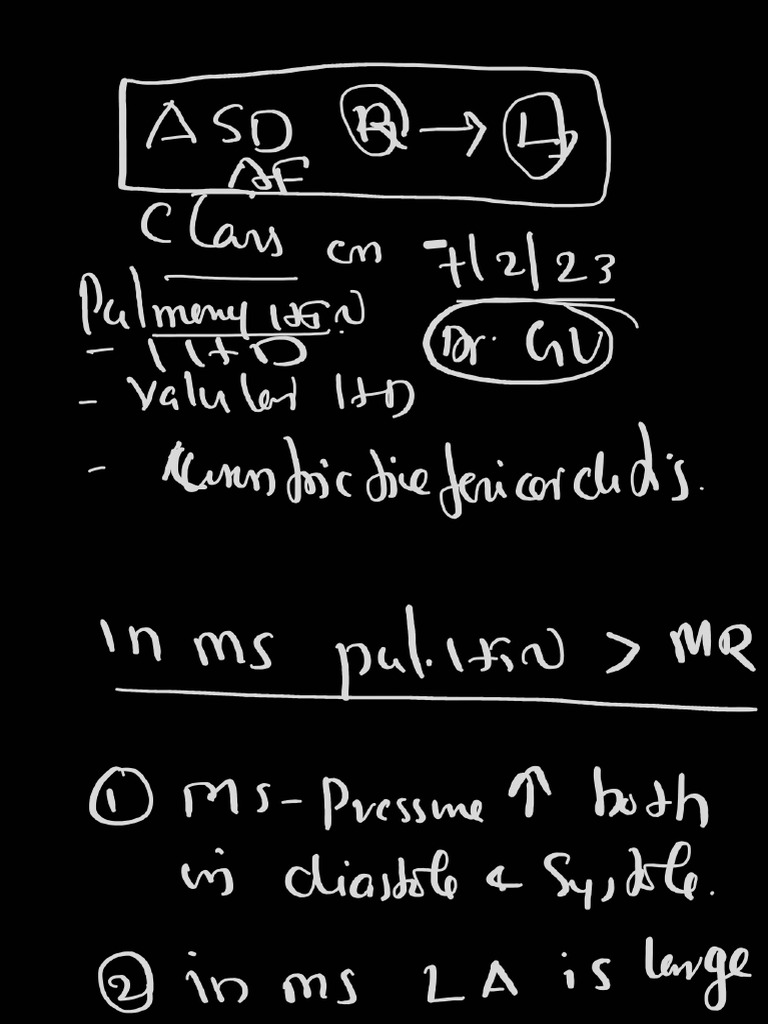 ASD R → L
AF
Class on 7/2/23
Pulmonary HTN
Dr. GV
- IHD
- Valular HD
- Constrictive Pericarditis.
in ms pul. HTN > MR
① MS - Pressure ↑ both
in diastole & Systole.
② in ms LA is large